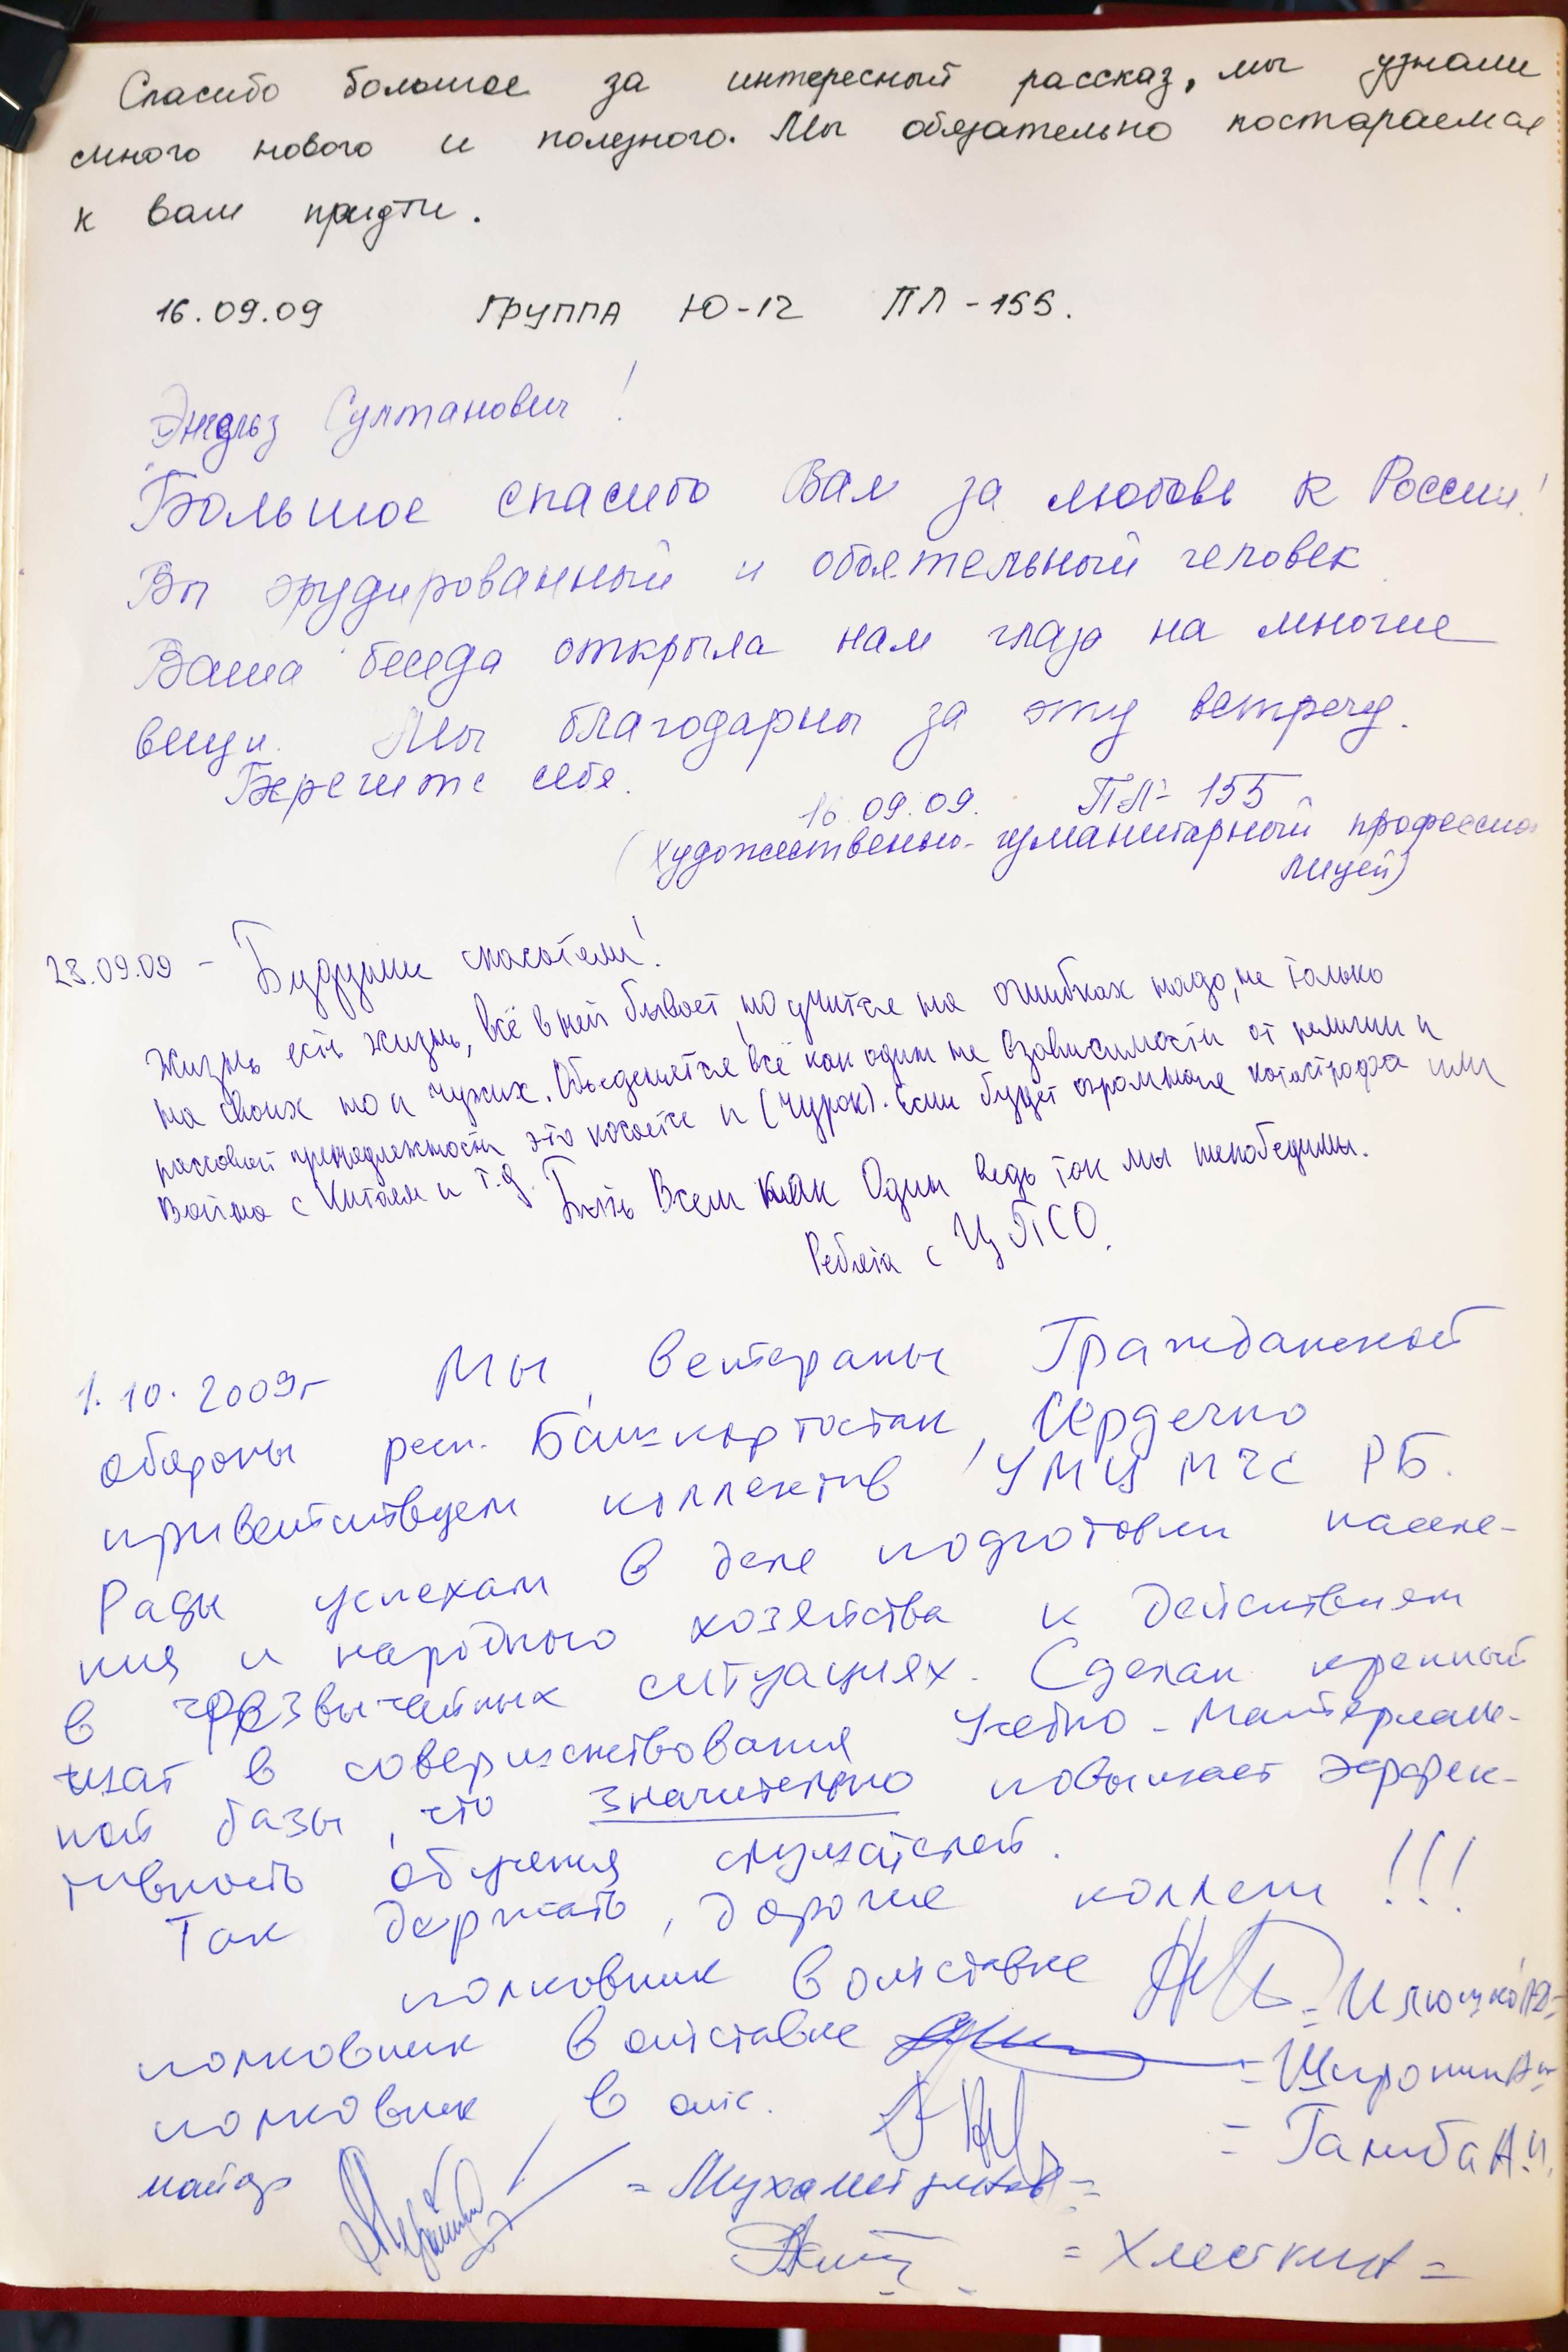 Спасибо большое за интересный рассказ, мы узнали
много нового и полезного. Мы обязательно постараемся
к вам придти.
16.09.09 ГРУППА Ю-12 ПЛ-155.
Энгельз Султанович!
Большое спасибо Вам за любовь к России!
Вы эрудированный и обоятельный человек
Ваша беседа открыла нам глаза на многие
вещи. Мы благодарны за эту встречу.
Берегите себя.
16.09.09. ПЛ-155
(художественно-гуманитарный профессио
лицей)
23.09.09 - Будущие спасатели!
Жизнь есть жизнь, всё в ней бывает, но учится на ошибках надо, не только
на своих но и чужих. Обьеденятся всё как один не взовисимости от религии и
рассовой пренадлежности это косается и (чурок). Если будет огромная катастрофа или
Война с Китаем и т.д. Быть Всем как Один ведь так мы непобедимы.
Ребята с ЦПСО.
1.10.2009г Мы, ветераны Гражданской
обороны респ. Башкортостан, сердечно
приветствуем коллектив УМЦ МЧС РБ.
Рады успехам в деле подготовки населе-
ния и народного хозяйства к действиям
в чрезвычайных ситуациях. Сделан крепкий
шаг в совершенствования учебно-материаль-
ной базы, что значительно повышает эффек-
тивность обучения слушателей.
Так держать, дорогие коллеги!!!
полковник в отставке =Илюшко
полковник в отставке =Широнин
полковник в отс. =Ганиба А.И.
майор =Мухаметдинов=
=Хлесткин=